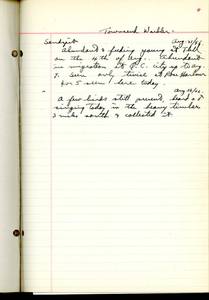 Townsend Warbler.
Sandspit Aug
Abundant & feeding young at
on the 4th of Aug. Abundant
in migration at city up to Aug
7. Seen only twice at
for 5 seen here today.
Aug
A few birds still present, heard a
singing today in the heavy timber
2 miles south & collected it.